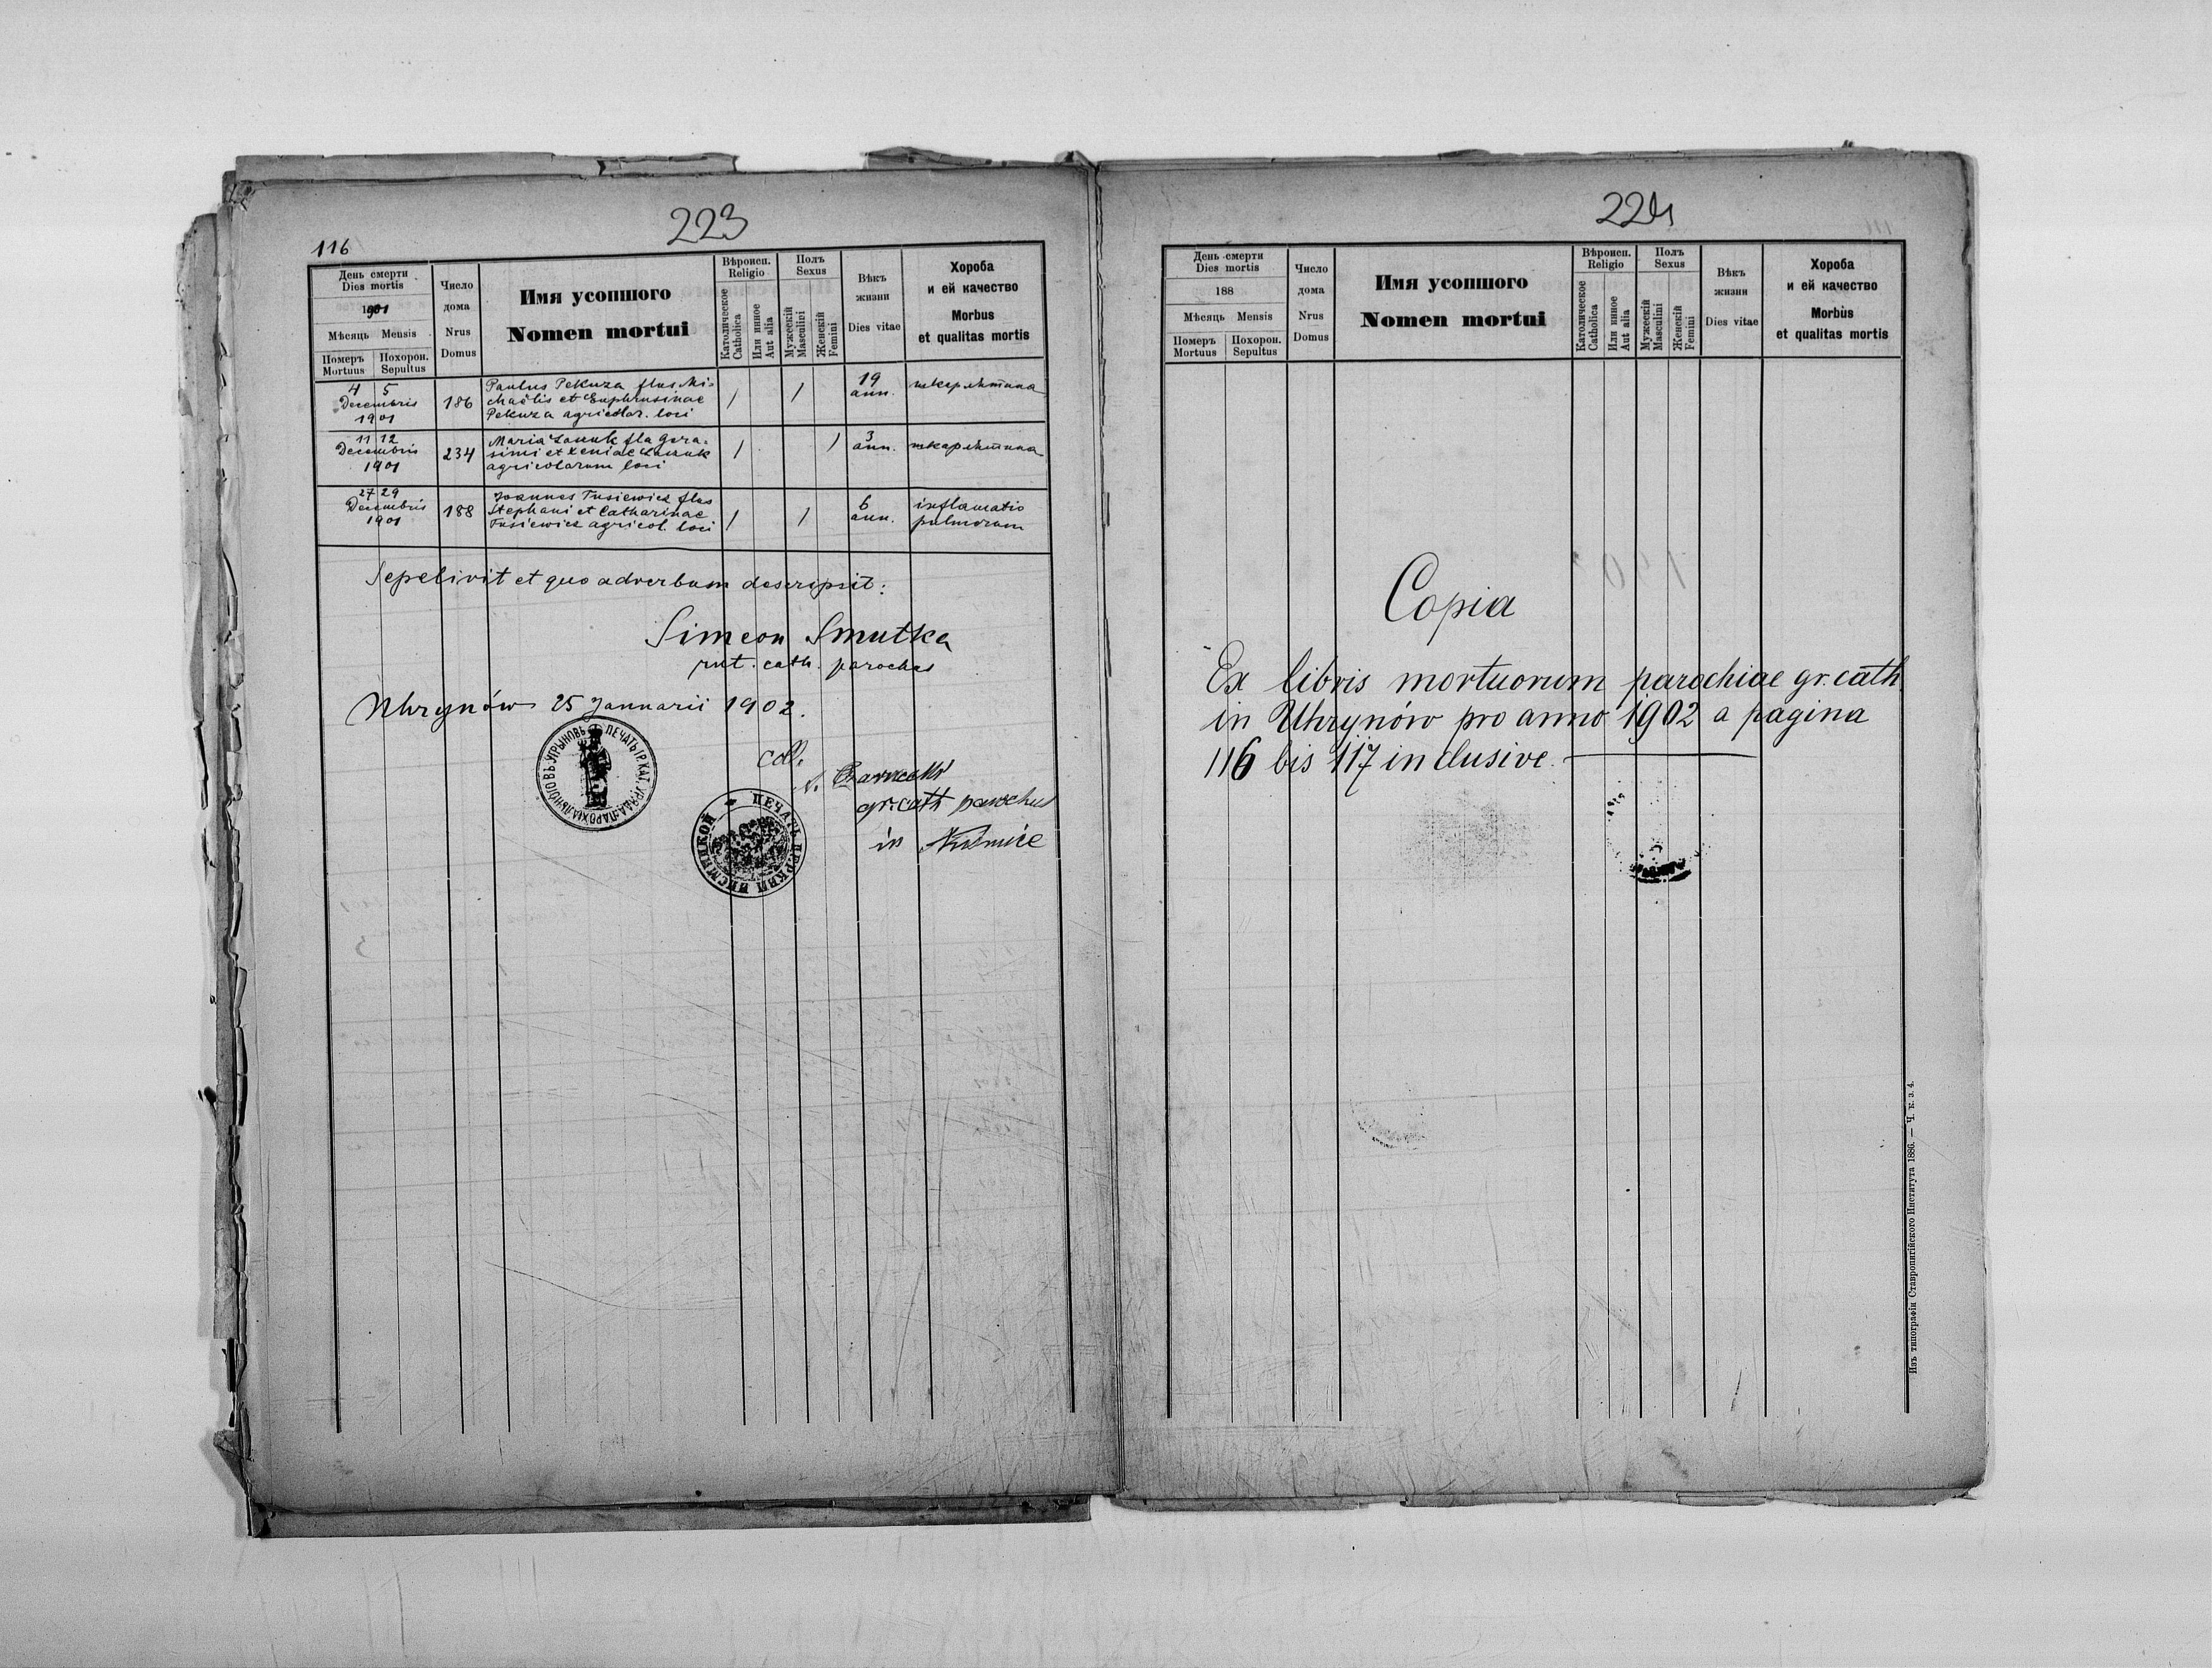 223
116
День смерти
Dies mortis
1901
Мѣсяць Mensis
Померъ Mortuus
Похорон. Sepultus
Число дома
Nrus Domus
Имя усопшого
Nomen mortui
Вѣроисп.
Religio
Католическое Catholica
Или инное Aut alia
Полъ
Sexus
Мужескій Masculini
Женскій Femini
Вѣкъ жизни
Dies vitae
Хороба
и ей качество
Morbus
et qualitas mortis
4 5
Decembris
1901
186
Paulus Pekuza flus Mi-
chaëlis et Euphrosinae
Pekuza agricolar. loci
1 1
19
ann.
шкарлятина
11 12
Decembris
1901
234
Maria Łanuk fla Gera-
simi et Xeniae Łanuk
agricolarum loci
1 1
3
ann.
шкарлятина
27 29
Decembris
1901
188
Joannes Tusiewicz flus
Stephani et Catharinae
Tusiewicz agricol. loci
1 1
6
ann.
inflamatio
pulmorum
Sepelivit et quo adverbum descripsit:
Simeon Smutka
rut. cath. parochus
Uhrynów 25 Januarii 1902.
ПЕЧАТЬ ГР. КАТ. УРЯДА ПАРОХІАЛЬНОГО ВЪ УГРЫНОВЪ
coll.
gr. cath parochus
in
ПЕЧАТЬ ЦЕРКВИ НИСМИЦКОЙ
224
День смерти
Dies mortis
188
Мѣсяць Mensis
Померъ Mortuus
Похорон. Sepultus
Число дома
Nrus Domus
Имя усопшого
Nomen mortui
Вѣроисп.
Religio
Католическое Catholica
Или инное Aut alia
Полъ
Sexus
Мужескій Masculini
Женскій Femini
Вѣкъ жизни
Dies vitae
Хороба
и ей качество
Morbus
et qualitas mortis
Copia
Ex libris mortuorum parochiae gr. cath.
in Uhrynów pro anno 1902 a pagina
116 bis 117 inclusive.
Изъ типографіи Ставропигійского Института 1886. — Ч. к. з. 4.